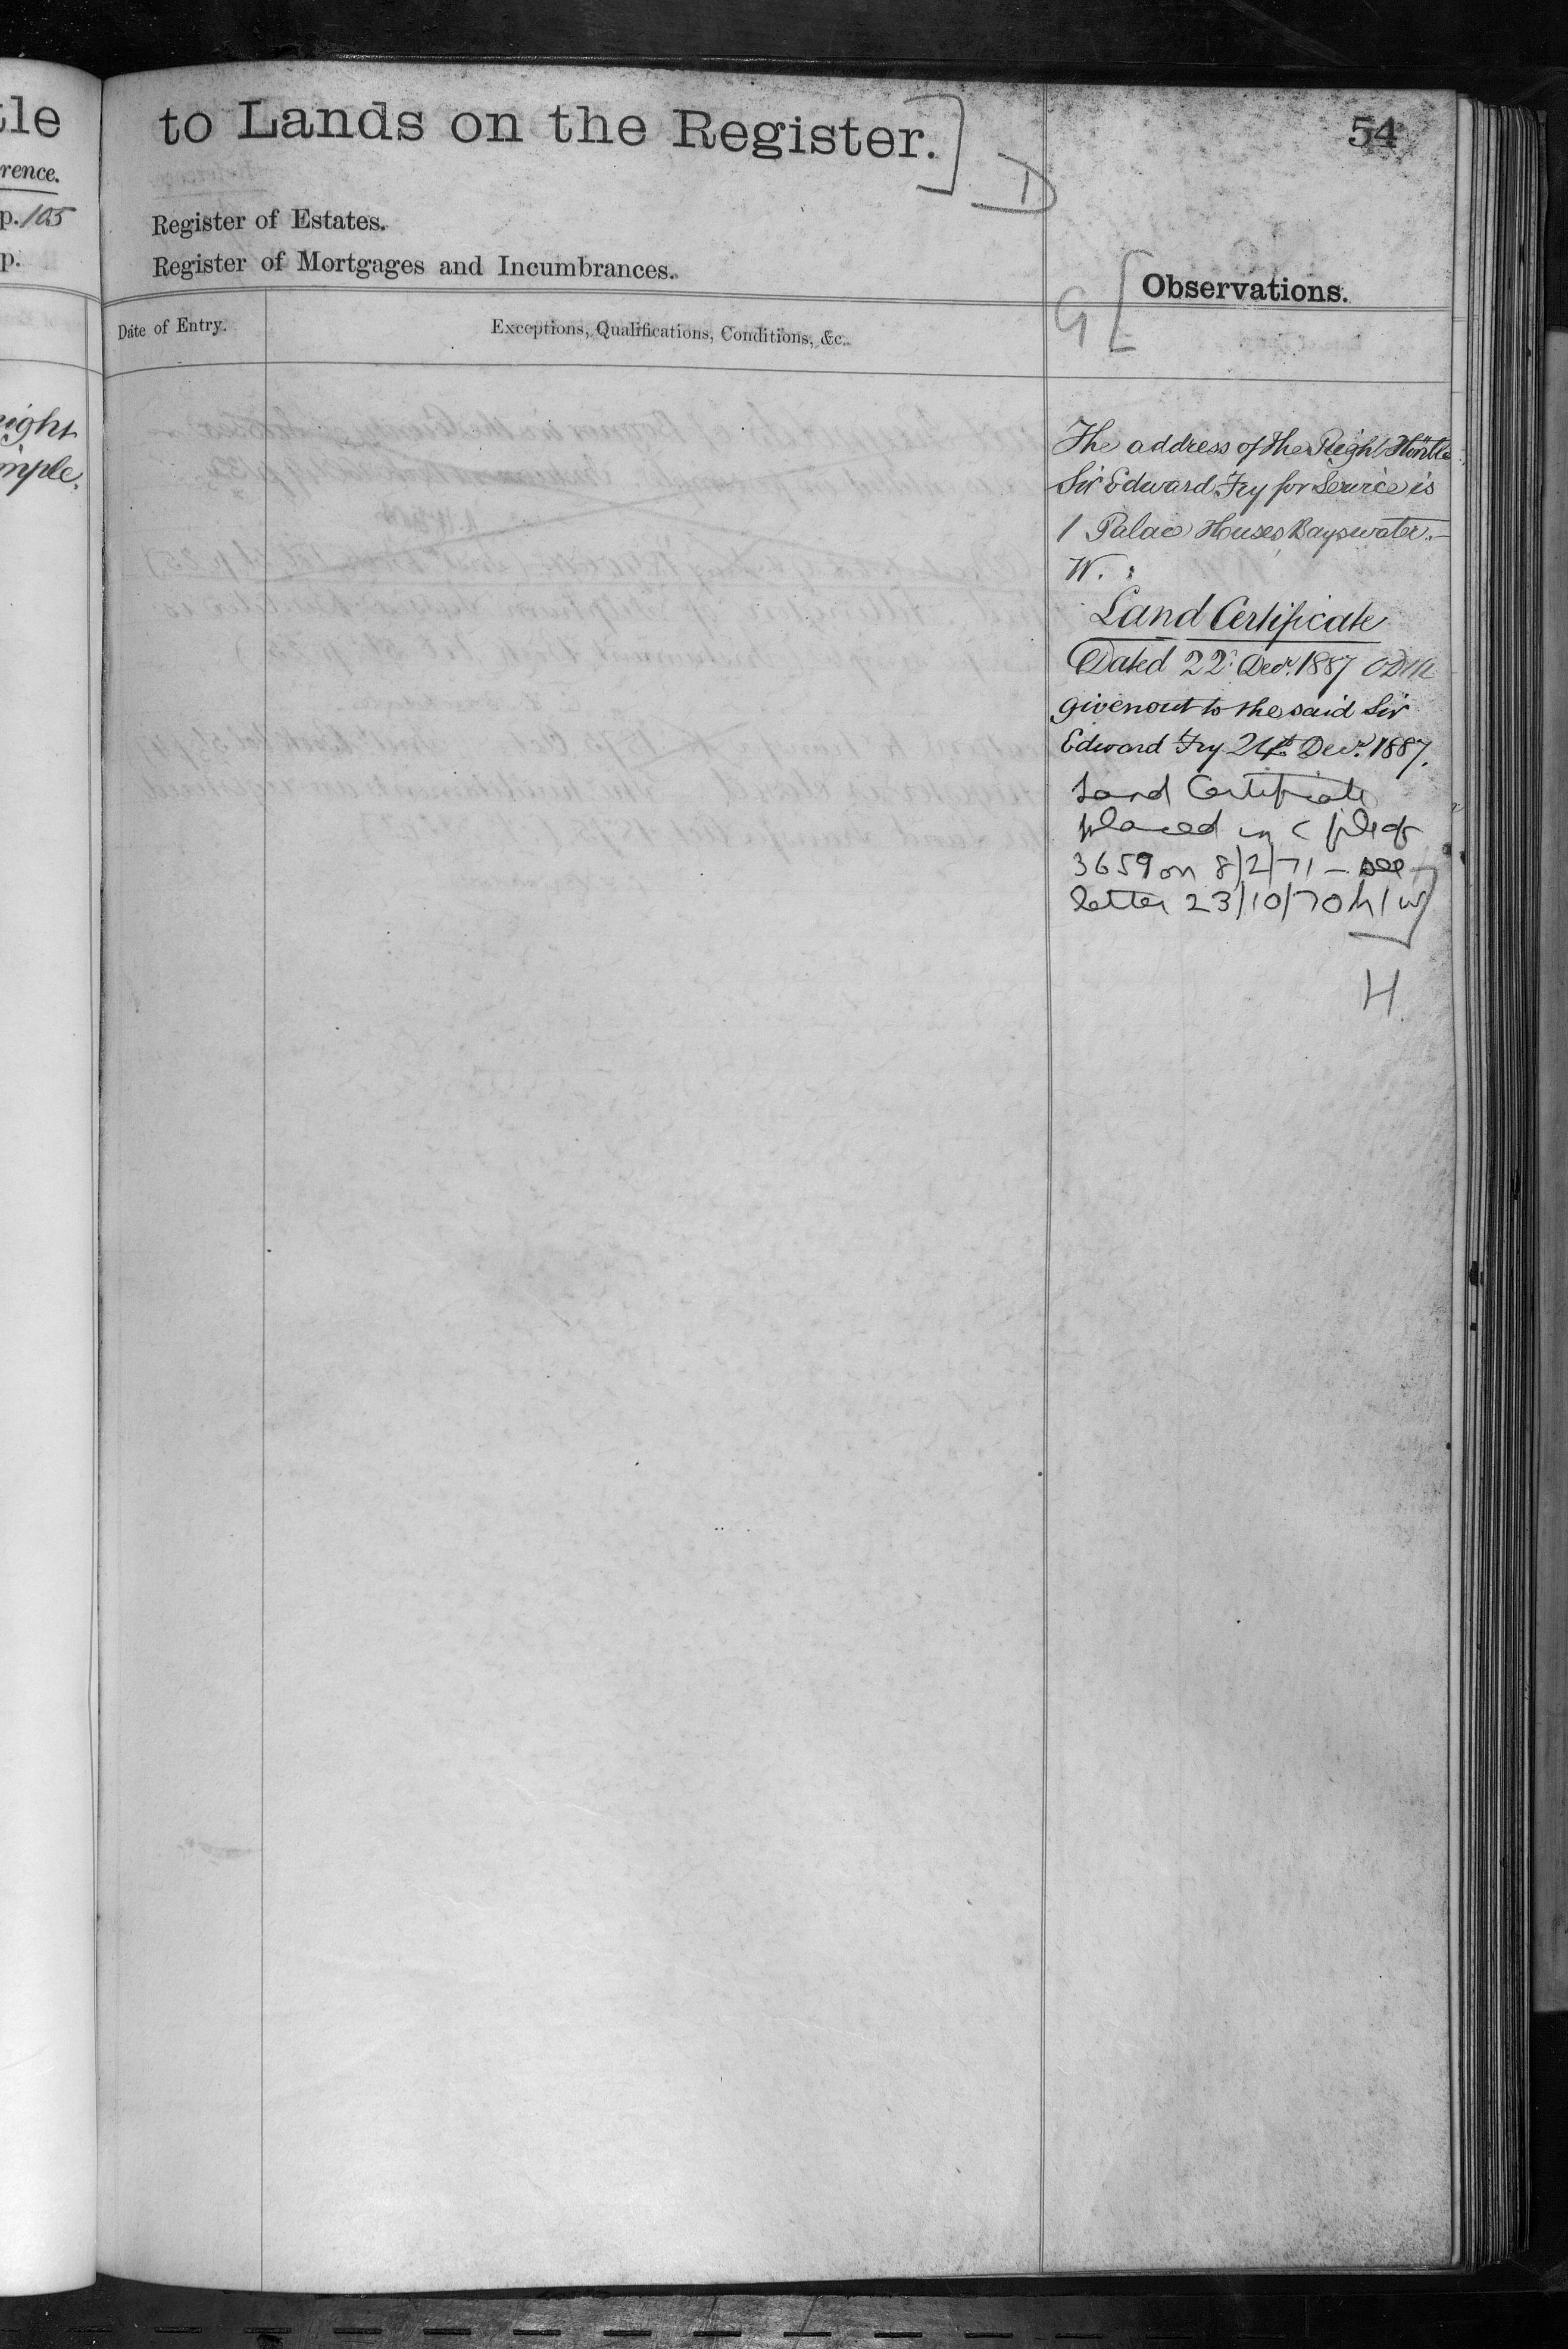 tle
rence.
p. 105
p.
eight
imple.
to Lands on the Register.] D
54
Register of Estates.
Register of Mortgages and Incumbrances.
G [ Observations.
Date of Entry.
Exceptions, Qualifications, Conditions, &c.
The address of the Right Honble
Sir Edward Fry for Service is
1 Palace Houses Bayswater.
W.
Land Certificate
Dated 22 Decr. 1887
given out to the said Sir
Edward Fry 24th Decr. 1887.
Land Certificate
placed in c file of
3659 on 8/2/71 - see
letter 23/10/70 ]
H